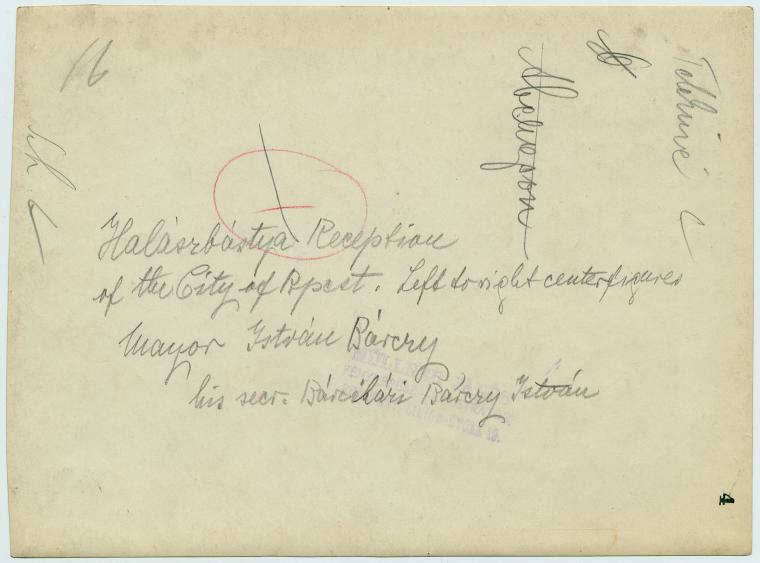 16
Halászbástya Reception
of the City of Bpest. Left to right center figures
Mayor István Bárczy
his secr. Bárciházi Bárczy István
4